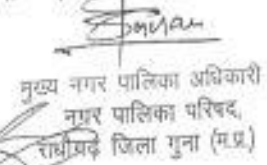 मुख्य नगर पालिका अधिकारी
नगर पालिका परिषद,
राघौगढ़ जिला गुना (म.प्र.)